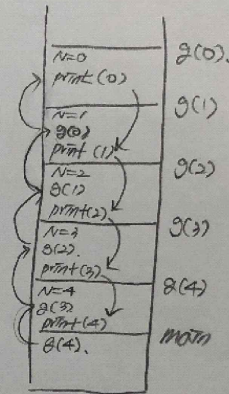 N=0
print(0)
g(0).
N=1
g(0)
print(1)
g(1)
N=2
g(1)
print(2)
g(2)
N=3
g(2).
print(3)
g(3)
N=4
g(3)
print(4)
g(4)
g(4).
main